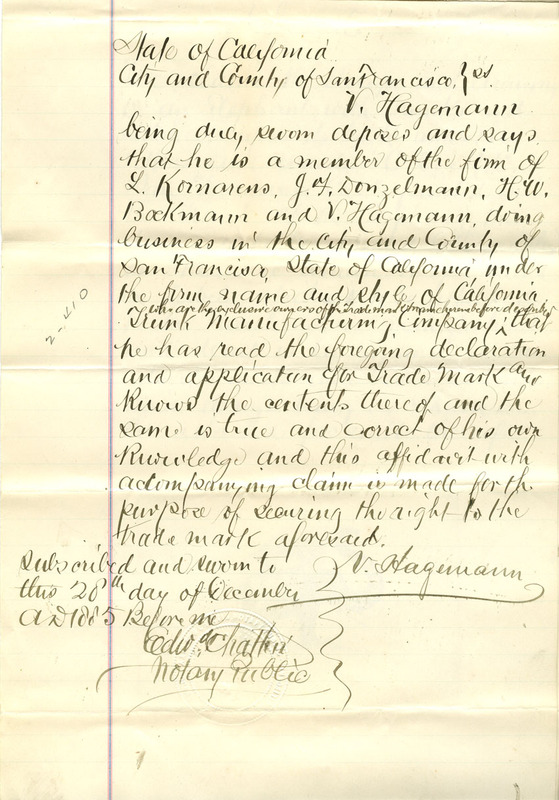 State of California
City and County of San Francisco, } ss.
V. Hagemann
being duly sworn deposes and says
that he is a member of the firm of
L. Kornarens, J. F. Donzelmann, H. W.
Bockmann and V. Hagemann, doing
business in the City and County of
San Francisco, State of California, under
the firm name and style of California
who are the exclusive owners of the Trade mark herein before described
Trunk Manufacturing Company, that
he has read the foregoing declaration
and application for Trade Mark and
Knows the contents thereof and the
same is true and correct of his own
Knowledge and this affidavit with
accompanying claim is made for the
purpose of securing the right to the
trade mark aforesaid.
Subscribed and sworn to
V. Hagemann
this 28th day of December
A D 1885 Before me
Notary Public
2-410